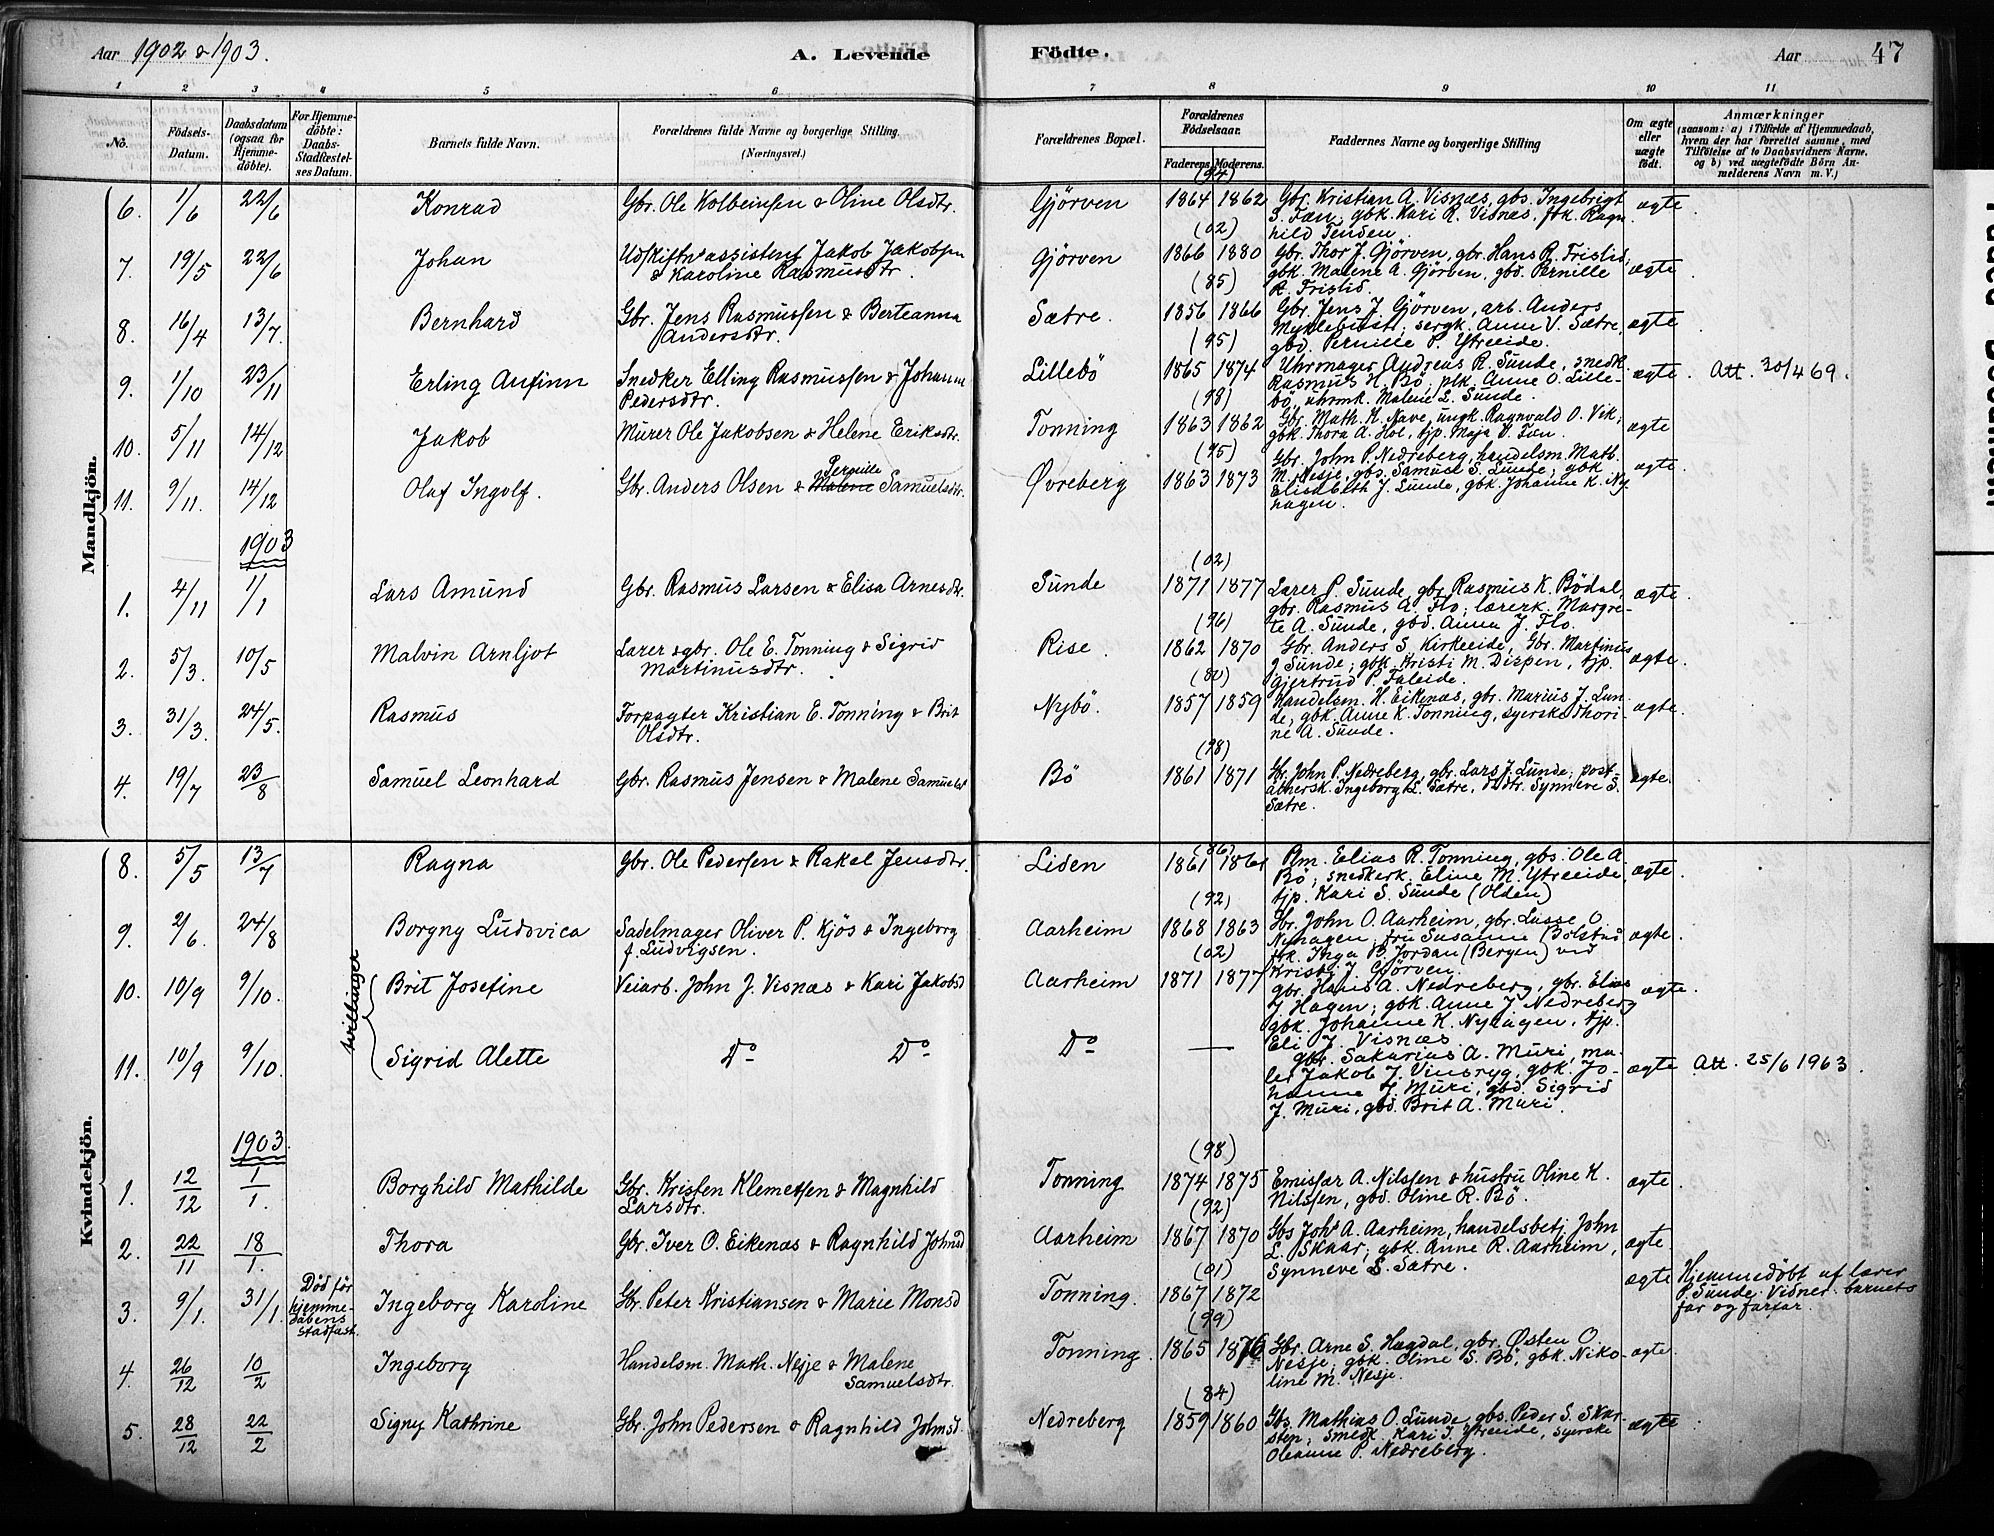 Aar 1902 & 1903. A. Levende Födte. Aar 47
1 2 3 4 5 6 7 8 9 10 11
No. Födsels-Datum. Daabsdatum (ogsaa for Hjemmedöbte). For Hjemmedöbte: Daabs-Stadfæstelses Datum. Barnets fulde Navn. Forældrenes fulde Navne og borgerlige Stilling. (Næringsvei.) Forældrenes Bopæl. Forældrenes Födselsaar. Faderens. Moderens. Faddernes Navne og borgerlige Stilling Om ægte eller uægte födt. Anmærkninger (saasom: a) i Tilfælde af Hjemmedaab, hvem der har forrettet samme, med Tilföielse af to Daabsvidners Navne, og b) ved uægtefödte Börn Anmelderens Navn m. V.)
Mandkjön.
(94)
6. 1/6 22/6 Konrad Gbr. Ole Kolbeinsen & Oline Olsdtr. Gjörven 1864 1862 Gbr. Kristian A. Visnæs, gbs. Ingebrigt
S. Tæn; gbk. Kari R. Visnæs, fbk. Ragn-
hild Tenden. ægte
(02)
7. 19/5 22/6 Johan Udskiftn. assistent Jakob Jakobsen
& Karoline Rasmusdtr. Gjörven 1866 1880 Gbr. Thor J. Gjörven, gbr. Hans R. Frislid,
gbk. Malene A. Gjörven, gbd. Pernille
R. Frislid. ægte
(85)
8. 16/4 13/7 Bernhard Gbr. Jens Rasmussen & Berteanna
Andersdtr. Sætre. 1856 1866 Gbr. Jens J. Gjörven, arb. Anders
Myklebust; sergk. Anne V. Sætre,
gbd. Pernille P. Ytreeide. ægte
(95)
9. 1/10 23/11 Erling Anfinn Snedker Elling Rasmussen & Johanne
Pedersdtr. Lillebö 1865 1874 Uhrmager Andreas R. Sunde, snedk.
Rasmus N. Bö; plk. Anne O. Lille-
bö, uhrmk. Malene L. Sunde. ægte. Att. 30/4 69.
(98)
10. 5/11 14/12 Jakob Murer Ole Jakobsen & Helene Eriksdtr. Tonning 1863 1862 Gbr. Math. K. Nave, ungk. Ragnvald O. Vik;
gbk. Thora A. Hol, tjp. Maja V. Tæn. ægte
(95)
11. 9/11. 14/12 Olaf Ingolf. Gbr. Anders Olsen & Malene Pernille Samuelsdtr. Øvreberg 1863 1873 Gbr. John P. Nedreberg, handelsm. Math.
M. Nesje, gbs. Samuel S. Sunde; gbk.
Elisabeth J. Sunde, gbk. Johanne K. Ny-
hagen. ægte.
1903
(02)
1. 4/11 1/1 Lars Amund Gbr. Rasmus Larsen & Elisa Arnesdtr. Sunde 1871 1877 Lærer P. Sunde, gbr. Rasmus K. Bödal,
gbr. Rasmus A. Flo; lærerk. Margre-
te A. Sunde, gbd. Anna J. Flo. ægte.
(96)
2. 5/3. 10/5 Malvin Arnljot Lærer & gbr. Ole E. Tonning & Sigrid
Martinusdtr. Rise. 1862 1870 Gbr. Anders S. Kirkeeide, Gbr. Martinus
J. Sunde; gbk. Kristi M. Dispen, tjp.
Gjertrud P. Faleide. ægte.
(80)
3. 31/3. 24/5. Rasmus Forpagter Kristian E. Tonning & Brit
Olsdtr. Nybö. 1857 1859 Handelsm. H. Eikenæs, gbr. Marius J. Sun-
de, gbk. Anne K. Tonning, syerske Thori-
ne A. Sunde. ægte.
(98)
4. 19/7 23/8 Samuel Leonhard Gbr. Rasmus Jensen & Malene Samuelsd Bö 1861 1871 Gbr. John P. Nedreberg, gbr. Lars J. Sunde; post-
åbnersk. Ingeborg L. Sætre, ddtr. Synneve S.
Sætre. ægte.
Kvindekjön.
(86)
8. 5/5 13/7 Ragna Gbr. Ole Pedersen & Rakel Jensdtr. Liden 1861 1861 Bm. Elias R. Tonning, gbs. Ole A.
Bö; snedkerk. Eline M. Ytreeide,
tjp. Kari S. Sunde (Olden) ægte.
(92)
9. 2/6. 24/8 Borgny Ludovica Sadelmager Oliver P. Kjös & Ingeborg
f. Ludvigsen. Aarheim 1868 1863 Gbr. John O. Aarheim, gbr. Lasse O.
Nyhagen, fru Susanne Bolstad
fbk. Inga B. Jordan (Bergen) ved
Kristi J. Gjörven. ægte.
(02)
tvillinger
10. 10/9 9/10. Brit Josefine Veiarb. John J. Visnæs & Kari Jakobsd Aarheim 1871 1877 gbr. Hans A. Nedreberg, gbr. Elias
J. Hagen; gbk. Anne J. Nedreberg
gbk. Johanne K. Nyhagen, tjp.
Eli J. Visnæs. ægte.
11. 10/9 9/10. Sigrid Alette Do Do Do — gbr. Sakarias A. Muri, ma-
ler Jakob J. Vinsryg, gbk. Jo-
hanne J. Muri, gbd. Sigrid
J. Muri, gbd. Brit A. Muri. ægte Att. 25/6 1963.
1903.
(98)
1. 12/12 1/1. Borghild Mathilde Gbr. Kristen Klemetsen & Magnhild
Larsdtr. Tonning 1874 1875 Emisær A. Nilssen & hustru Oline K.
Nilssen, gbd. Oline R. Bö. ægte.
(92)
2. 22/11 18/1. Thora Gbr. Iver O. Eikenæs & Ragnhild Johnsd Aarheim 1867 1870 Gbs Joh A. Aarheim, handelsbetj John
L. Skaar; gbk. Anne R. Aarheim,
Synneve S. Sætre. ægte.
(01)
3. 9/1. 31/1. Död för
hjemme-
dåbens
stadfæst. Ingeborg Karoline Gbr. Peter Kristiansen & Marie Monsd Tonning. 1867 1872 ægte Hjemmedöbt af lærer
P. Sunde. Vidner: barnets
far og farfar.
(99)
4. 26/12 10/2 Ingeborg Handelsm. Math. Nesje & Malene
Samuelsdtr. Tonning. 1865 1876 Gbr. Arne S. Hægdal, gbr. Østen O.
Nesje; gbk. Oline S. Bö, gbk. Niko-
line M. Nesje. ægte
(84)
5. 28/12 22/2 Signy Kathrine Gbr. John Pedersen & Ragnhild Johnsd Nedreberg 1859 1860 Gbs. Mathias O. Sunde, gbs. Peder S. Skar-
sten; smedk. Kari J. Ytreeide, syerske
Oleanne P. Nedreberg. ægte